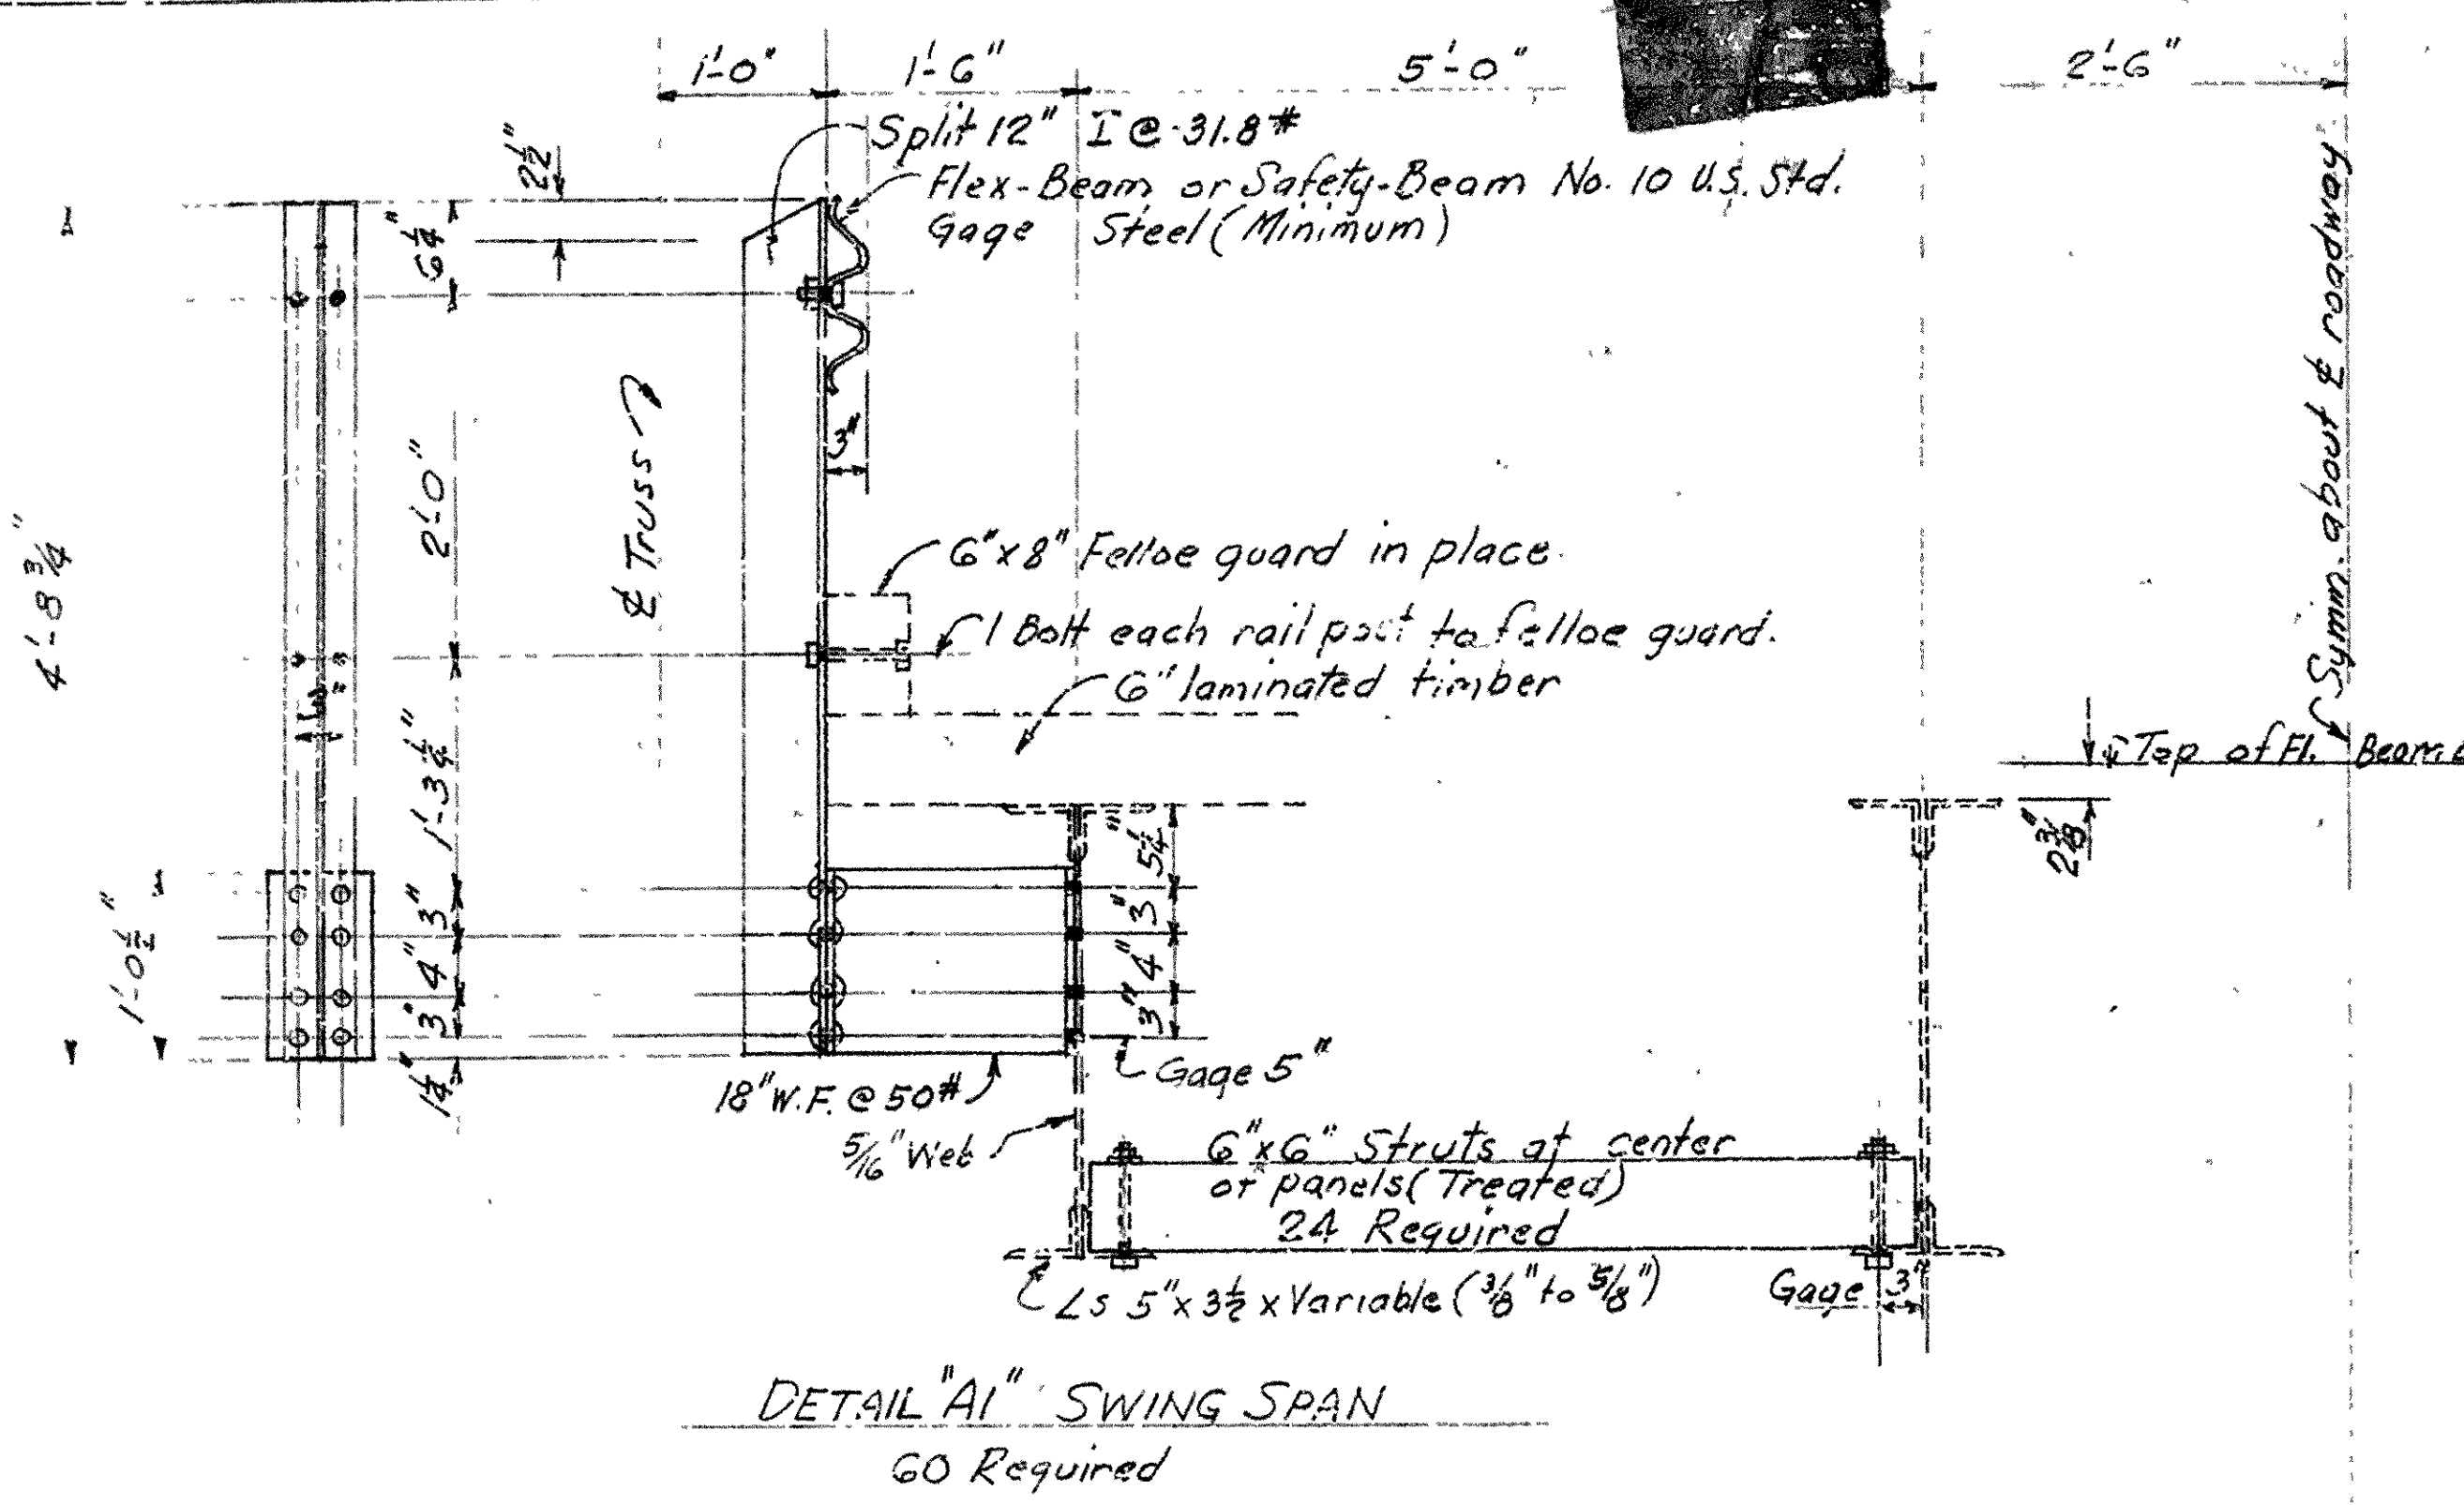 1'-0" 1'-6" 5'-0" 2'-6"
Split 12" I @ 31.8#
Flex-Beam or Safety-Beam No. 10 U.S. Std.
Gage Steel (Minimum)
2½"
6¼"
4'-8¾"
2'-0"
℄ Truss
3"
6"x8" Felloe guard in place.
1 Bolt each rail post to felloe guard.
6" laminated timber
℄ Symm. about ℄ roadway
Top of Fl. Beam
2⅜"
1'-3¼"
5¼"
1'-0½"
3"
4"
3"
1¼"
3"
4"
3"
Gage 5"
18" W.F. @ 50#
5/16" Web
6"x6" Struts at center
of panels (Treated)
24 Required
Ls 5"x3½ x Variable (⅜" to ⅝")
Gage 3"
DETAIL "A1" SWING SPAN
60 Required